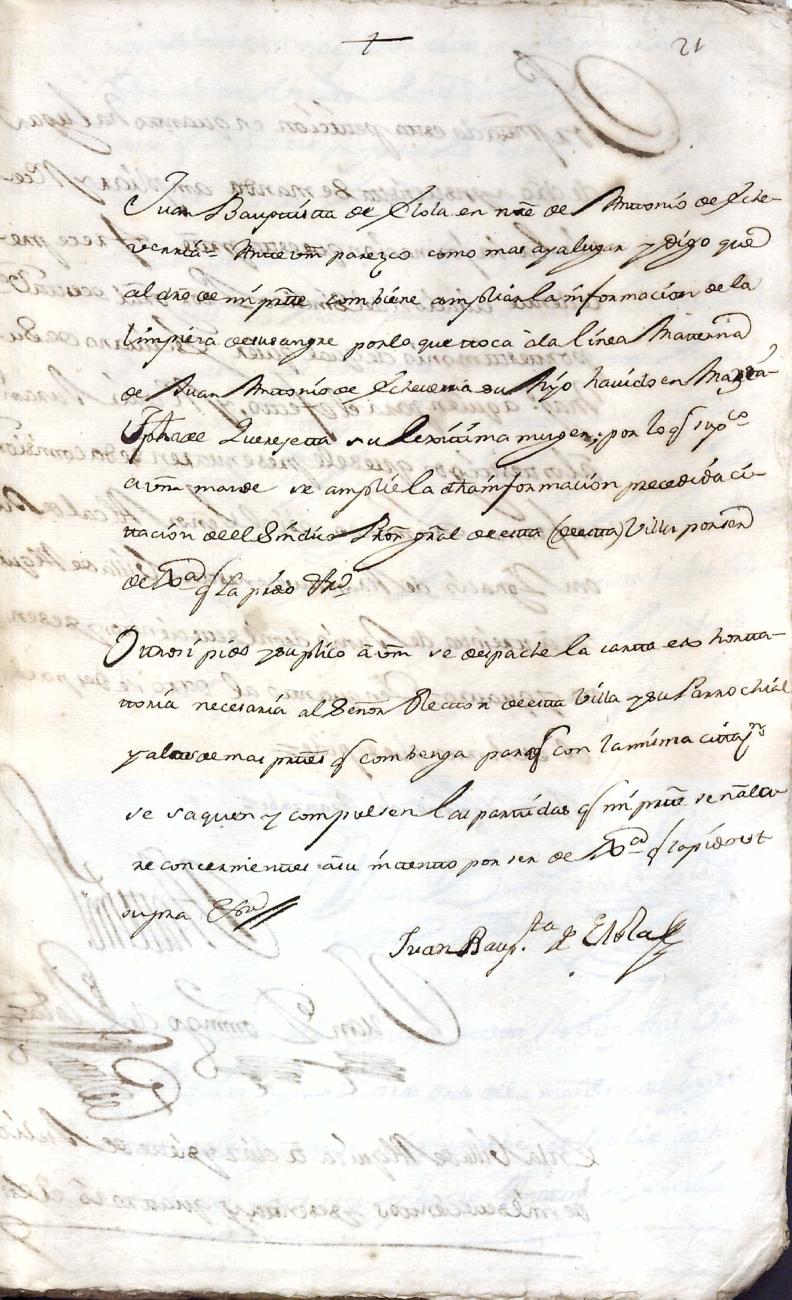 †
21
Juan Bauptista de Elola en nre de Antonio de Eche-
verria Ante vm parezco como mas aya lugar y digo que
al dro de mi parte combiene ampliar la informacion de la
limpieza de su sangre por lo que toca a la linea Materna
de Juan Antonio de Echeverria su Hijo havido en Maria
Jpha de Querejeta su lexitima muger; por lo q supco
a vm mande se amplie la dha informacion precedida ci-
tacion de el Sindico Pror gral de esta (de esta) Villa por ser
de Xa q la pido &ra
Otrosi pido y suplico a vm se despache la carta exorta-
toria necesaria al Señor Rector de esta Villa y su Parrochial
y a las demas partes q combenga para q con la misma citazn
se saquen y compulsen las partidas q mi parte señalare
concernientes a su intento por ser de Xa q la pido ut
supra &ra
Juan Baupta de Elola